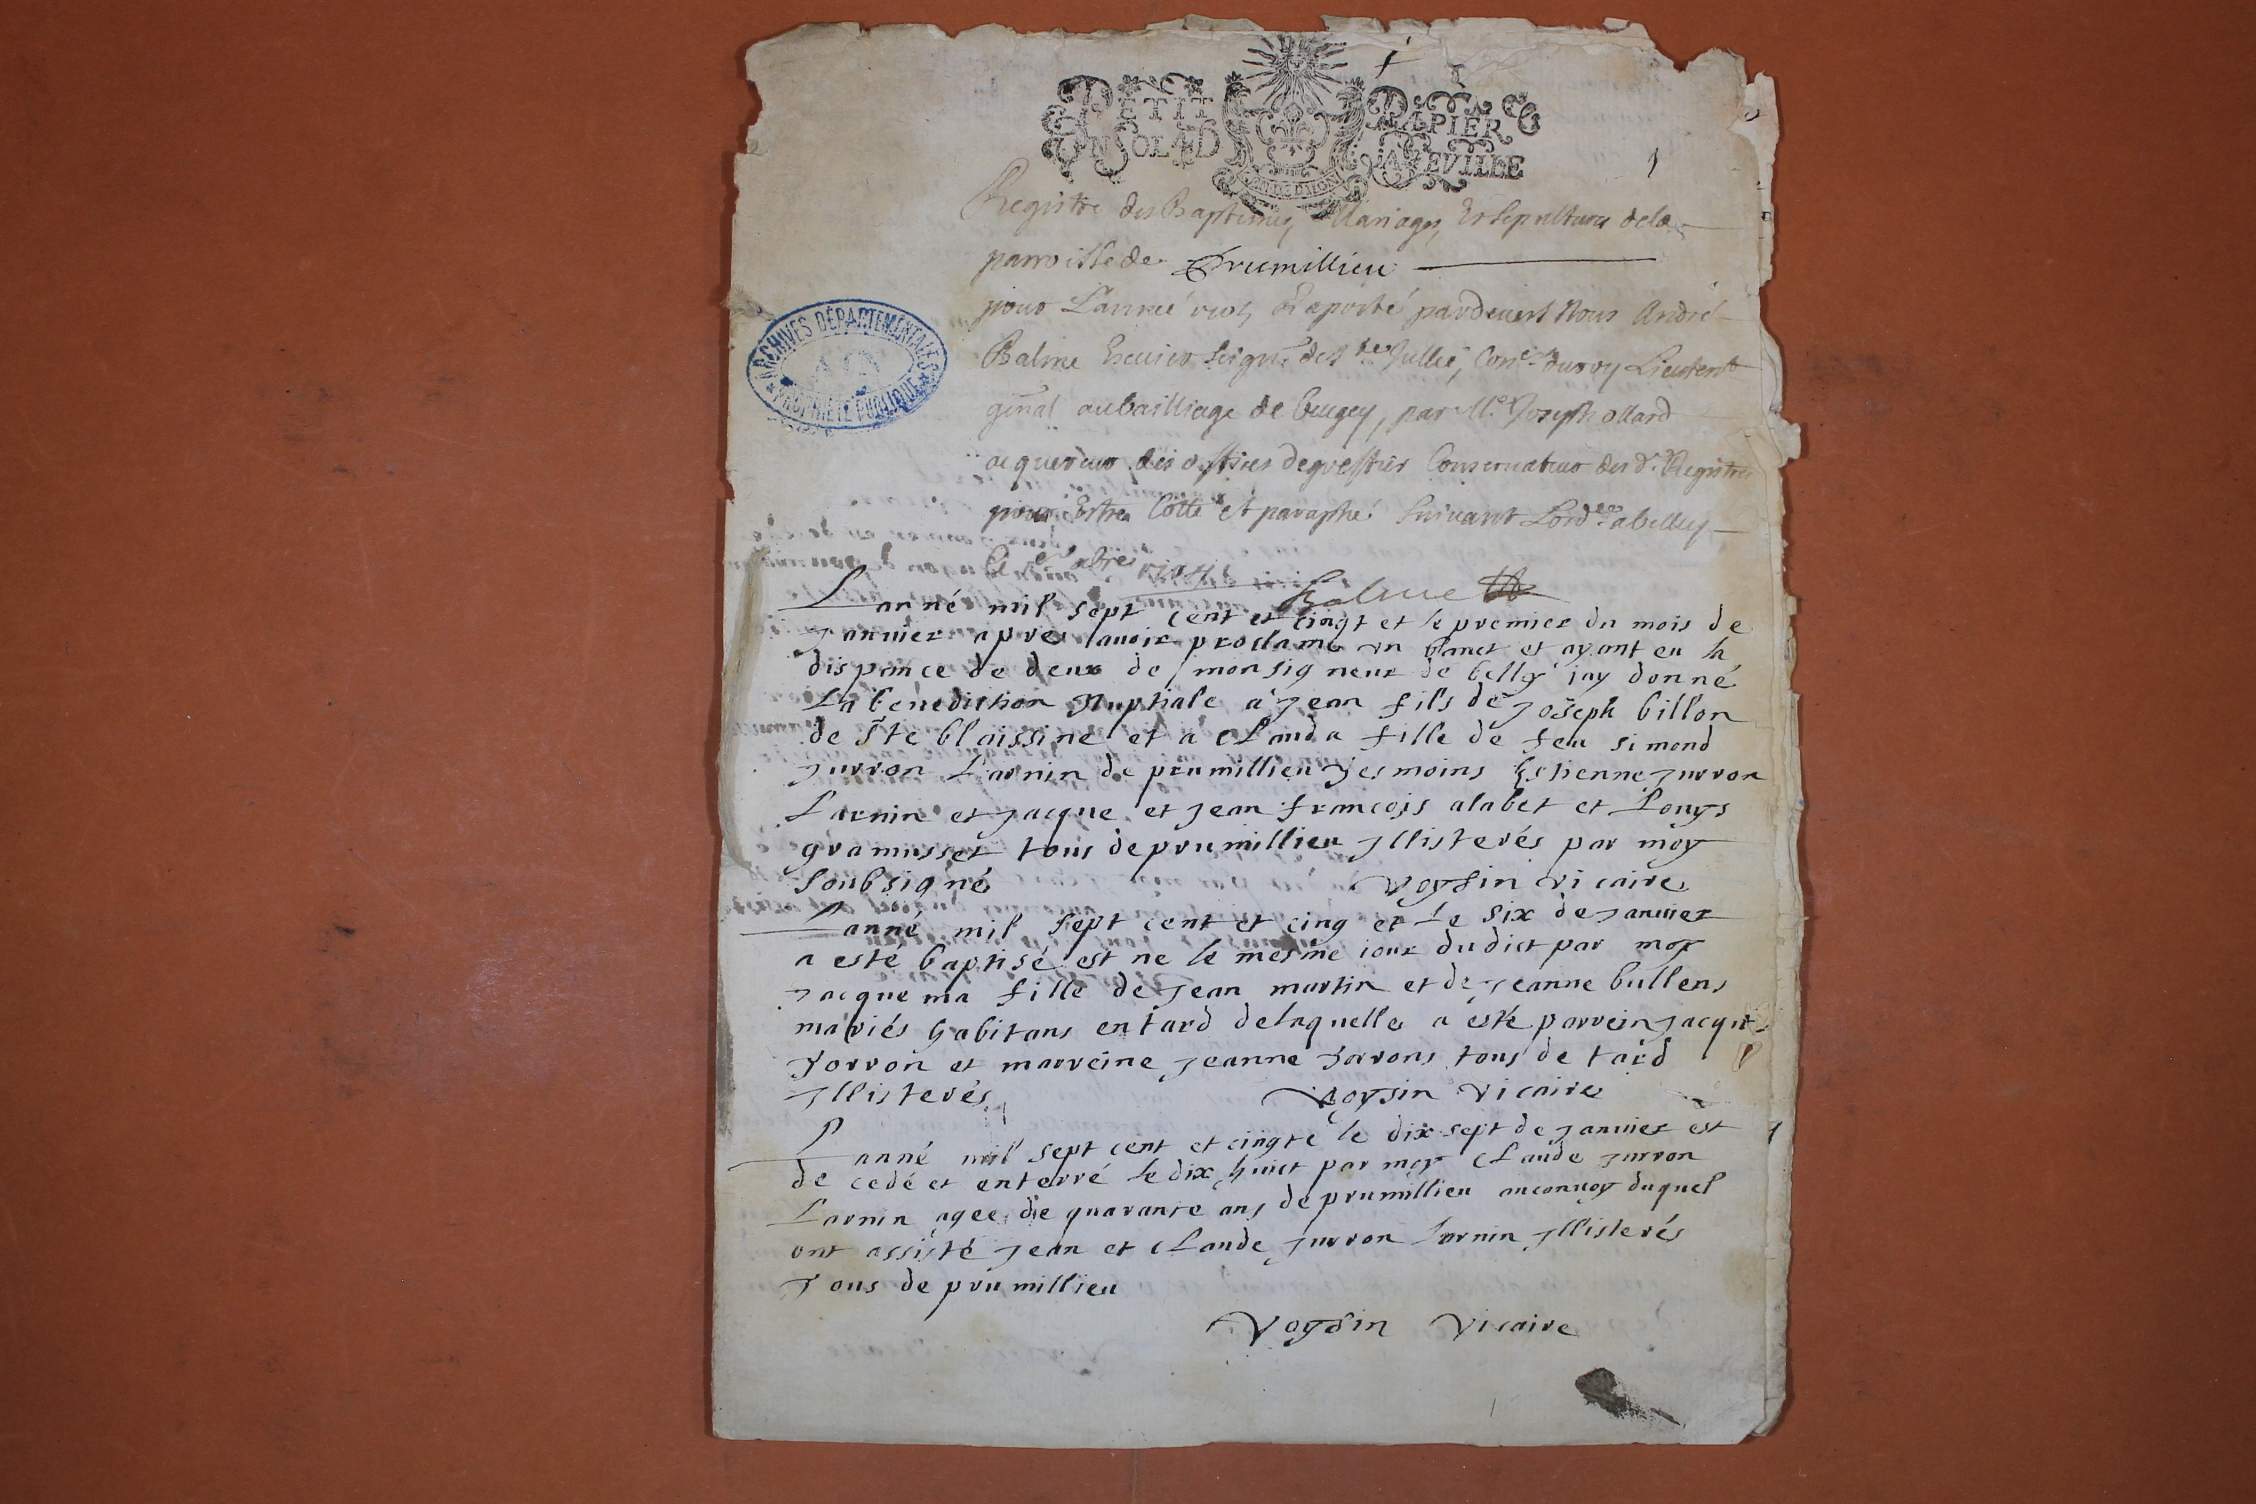 PETIT PAPIER
UN SOL 4 D LA FEVILLE
1
Registre des Baptemes, Mariages, Et sepultures de la
parroisse de Prumillieu
pour L'année 1705 raporté pardevent Nous André
Balme Escuier seigr des tes Jullie, Coner du roy Lieutent
genal au bailliage de bugey, par Me Joseph ollard
acquereur des offices de greffier Conservateur des d. Registres
pour Estre Cotté et paraphé suivant Lordce a belley
Balme
L'anné mil sept cent et cinqt et le premier du mois de
Janvier apres lauoir proclamé vn banct et ayant eu la
dispance de deux de monsigneur de belly jay donné
La benediction Nuptiale a Jean fils de Joseph billon
de Ste blaissine et a Clauda fille de feu simond
Jurron Larnin de prumillieu Tesmoins Estienne Jurron
Larnin et Jacque et Jean francois alabet et Louys
gramusset tous de prumillieu Jllisterés par moy
Soubsigné Voysin vicaire
Lanné mil sept cent et cinq et le six de Janvier
a esté baptisé est ne le mesme iour dudict par moy
Jacquema fille de Jean martin et de Jeanne bullens
mariés habitans en tard delaquelle a esté parrein Jacque
Jorron et marreine Jeanne Jorrons tous de tard
Jllisterés Voysin Vicaire
Lanné mil sept cent et cinqte le dix sept de Janvier est
decedé et enterré le dix huict par moy Claude Jurron
Larnin agee de quarante ans de prumillieu au convoy duquel
ont assisté Jean et Claude Jurron Larnin Jllisterés
Tous de prumillieu
Voysin Vicaire
ARCHIVES DÉPARTEMENTALES
AIN
PROPRIÉTÉ PUBLIQUE